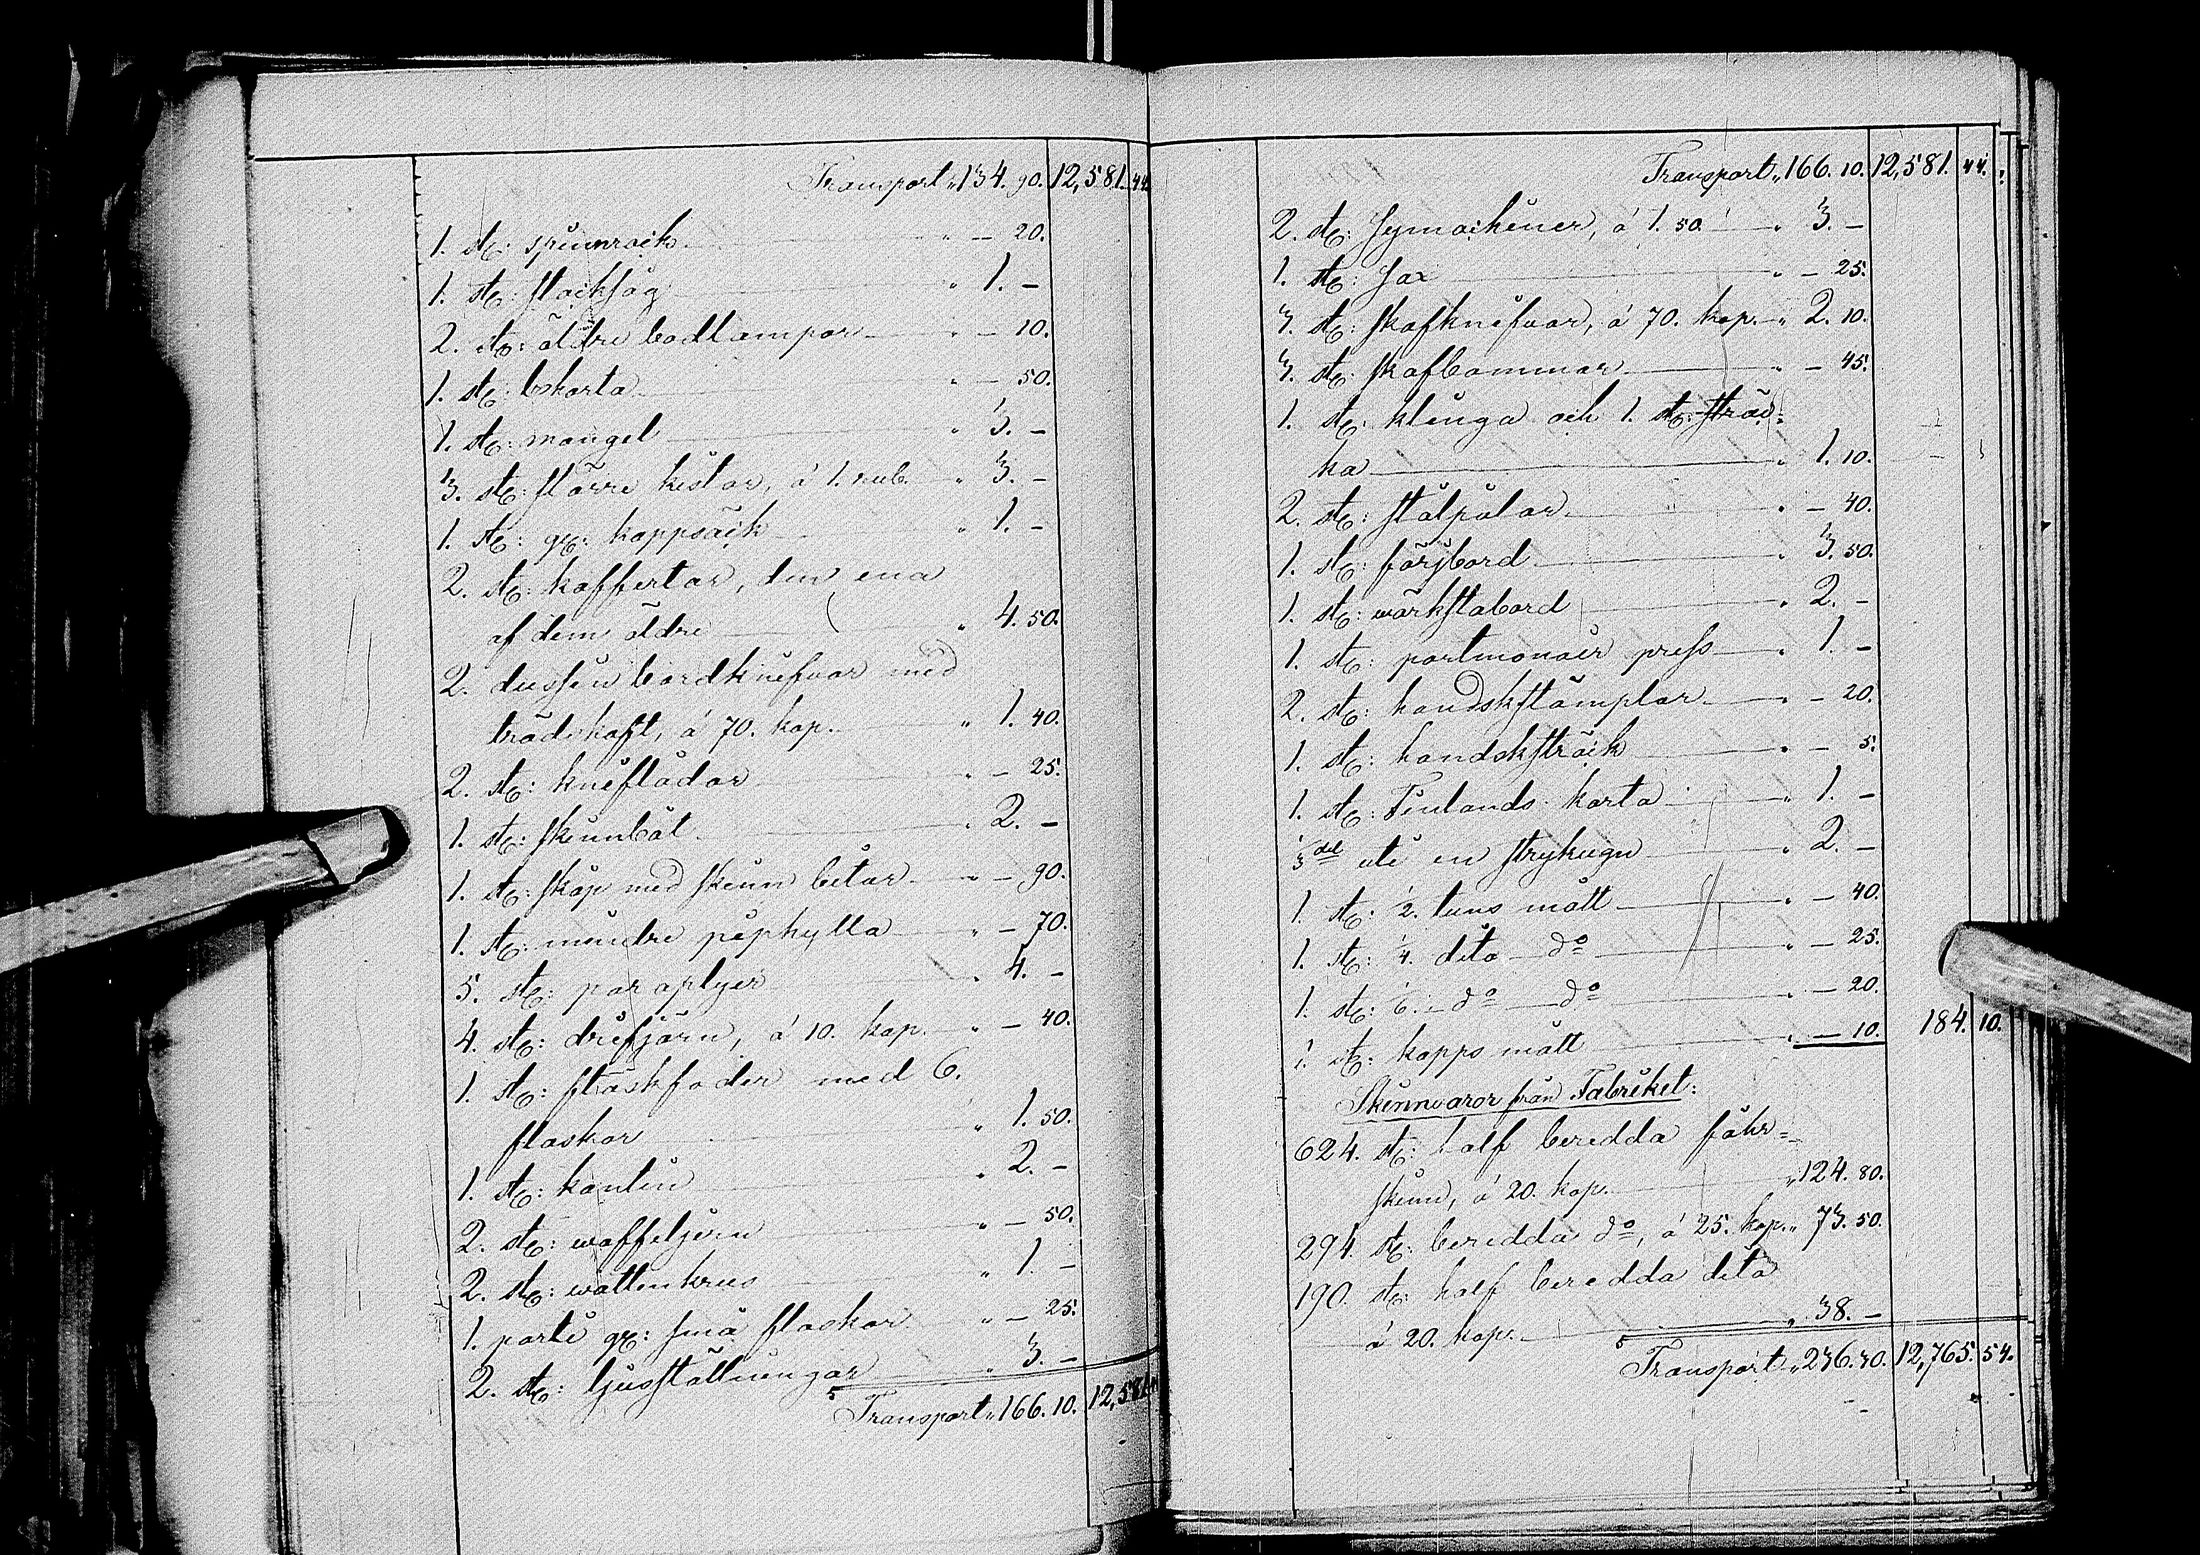 Transport „ 134. 90. 12,581. 44
1. st: spinnrock „ — 20.
1. st: stocksåg „ 1. —
2. st: äldre bodlampor „ — 10.
1. st: karta „ — 50.
1. st: mangel „ 3. —
3. st: större kistor, á 1. rub. „ 3. —
1. st: gl: kappsäck „ 1. —
2. st: koffertar, den ena
af dem äldre „ 4. 50.
2. dussin bordknifvar med
trädskaft, á 70. kop. „ 1. 40.
2. st: kniflådor „ — 25.
1. st: skinnbåt „ 2. —
1. st: skåp med skinn bitar „ — 90.
1. st: mindre piphylla „ — 70.
5. st: paraplyer „ 4. —
4. st: drifjärn, á 10. kop. „ — 40.
1. st: flaskfoder med 6.
flaskor „ 1. 50.
1. st: kantin „ 2. —
2. st: waffeljern „ — 50.
2. st: wattenkrus „ 1. —
1. parti gl: små flaskor „ — 25.
2. st: ljusställningar „ 3. —
Transport „ 166. 10. 12,581
Transport „ 166. 10. 12,581. 44.
2. st: symaskiner, á 1. 50. „ 3. —
1. st: sax „ — 25.
3. st: skafknifvar, á 70. kop. „ 2. 10.
3. st: skafbommar „ — 45.
1. st: klinga och 1. st: sträc=
ka „ 1. 10.
2. st: stålpålar „ — 40.
1. st: färjbord „ 3. 50.
1. st: wärkstabord „ 2. —
1. st: portmonäir press „ 1. —
2. st: handskstämplar „ — 20.
1. st: handsksträck „ — 5.
1. st: Finlands karta „ 1. —
1/3 del uti en strykugn „ 2. —
1. st: 1/2. tuns mått „ — 40.
1. st: 1/4. dito do „ — 25.
1. st: 1/6. do do „ — 20.
1. st: kapps mått „ — 10. 184. 10.
Skinnvaror från Fabriket:
624. st: half beredda fåhr=
skinn, á 20. kop. „ 124. 80.
294. st: beredda do, á 25. kop. „ 73. 50.
190. st: half beredda dito
á 20. kop. „ 38. —
Transport „ 236. 30. 12,765. 54.